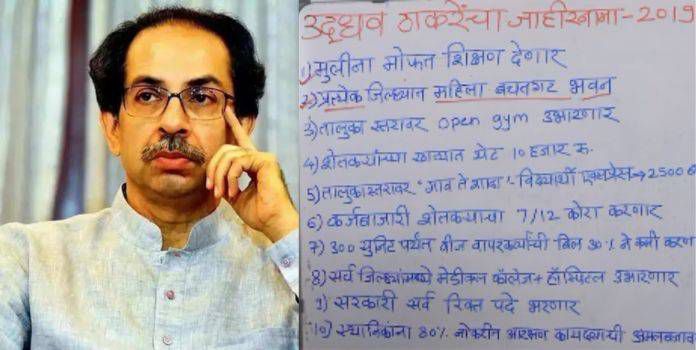 उद्धव ठाकरेंचा जाहीरनामा-2019
1) मुलींना मोफत शिक्षण देणार
2) प्रत्येक जिल्ह्यात महिला बचतगट भवन
3) तालुका स्तरावर open gym उभारणार
4) शेतकर्याच्या खात्यात थेट 10 हजार रु.
5) तालुकास्तरावर "गाव ते शाळा"- विद्यार्थी एक्सप्रेस → 2500
6) कर्जबाजारी शेतकर्याचा 7/12 कोरा करणार
7) 300 युनिट पर्यंत वीज वापरकर्त्यांची बिल 30% ने कमी करण
8) सर्व जिल्ह्यांमध्ये मेडीकल कॉलेज + हॉस्पिटल उभारणार
9) सरकारी सर्व रिक्त पदे भरणार
10) स्थानिकांना 80% नोकरीत आरक्षण कायद्याची अंमलबजाव